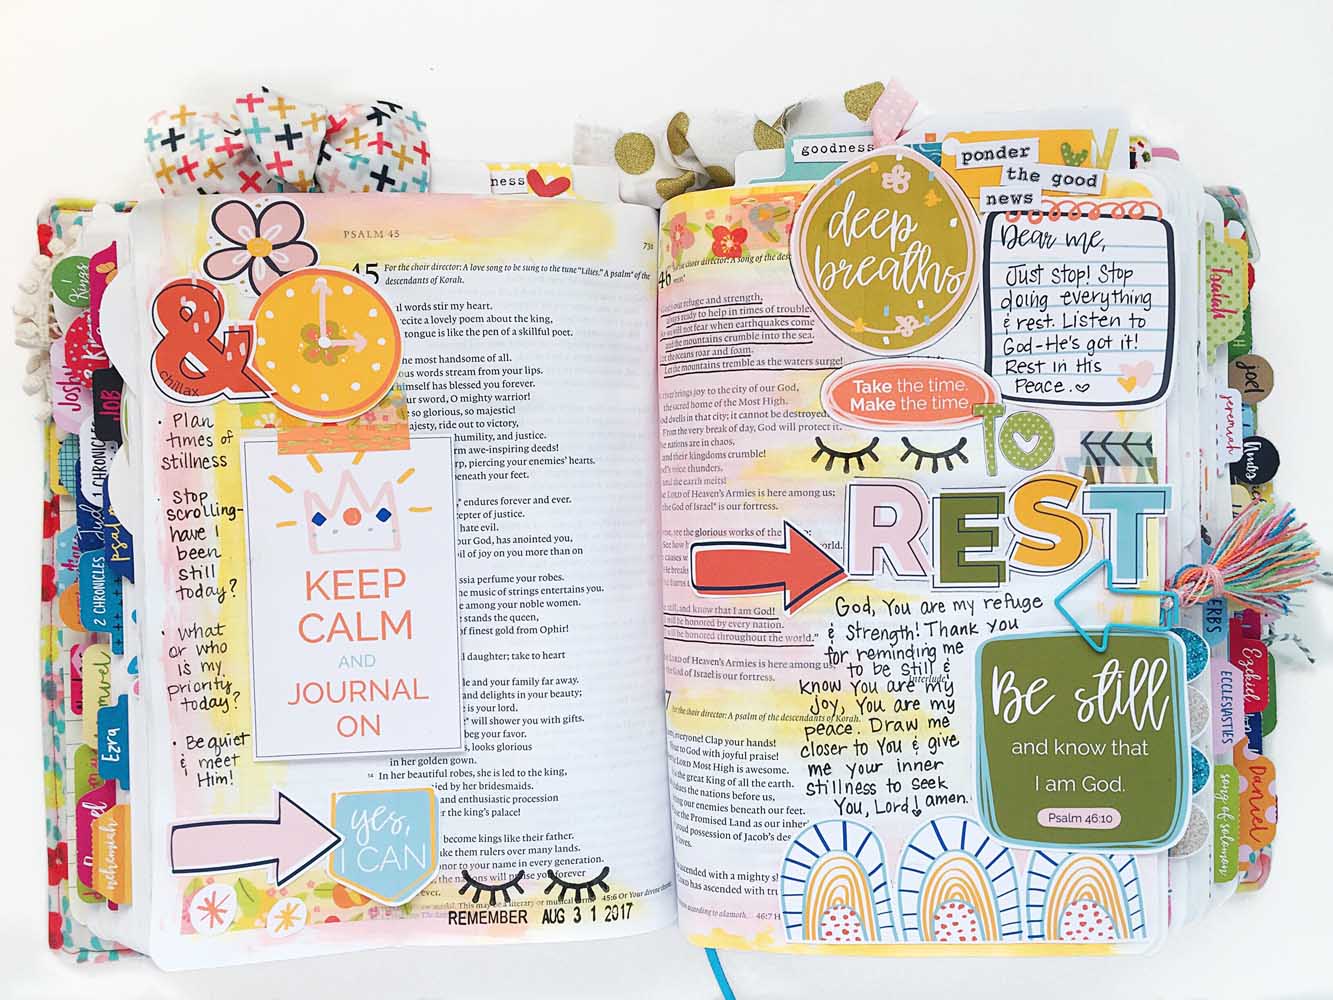 ness
PSALM 45
731
45
For the choir director: A love song to be sung to the tune "Lilies." A psalm* of the
descendants of Korah.
&
chillax
al words stir my heart.
recite a lovely poem about the king,
tongue is like the pen of a skillful poet.
he most handsome of all.
ous words stream from your lips.
himself has blessed you forever.
ur sword, O mighty warrior!
re so glorious, so majestic!
majesty, ride out to victory,
humility, and justice.
rm awe-inspiring deeds!
rp, piercing your enemies' hearts.
beneath your feet.
endures forever and ever.
scepter of justice.
hate evil.
our God, has anointed you,
oil of joy on you more than on
ssia perfume your robes.
he music of strings entertains you.
e among your noble women.
stands the queen,
of finest gold from Ophir!
l daughter; take to heart
le and your family far away.
and delights in your beauty;
e is your lord.
will shower you with gifts.
beg your favor.
, looks glorious
in her golden gown.
14 In her beautiful robes, she is led to the king,
ied by her bridesmaids.
and enthusiastic procession
r the king's palace!
become kings like their father.
ake them rulers over many lands.
onor to your name in every generation.
the nations will praise you forever
ever.
• Plan
times of
stillness
• Stop
scrolling-
have I
been
still
today?
• what
or who
is my
priority
today?
• Be quiet
& meet
Him!
KEEP
CALM
AND
JOURNAL
ON
yes,
I CAN
45:6 Or Your divine
REMEMBER AUG 31 2017
goodness
ponder
the good
news
deep
breaths
Dear me,
Just stop! Stop
doing everything
& rest. Listen to
God-He's got it!
Rest in His
Peace.
Take the time.
Make the time.
TO
REST
46
choir director: A song of the
God is our refuge and strength,
always ready to help in times of trouble.
So we will not fear when earthquakes come
and the mountains crumble into the sea.
Let the oceans roar and foam.
Let the mountains tremble as the waters surge!
river brings joy to the city of our God,
the sacred home of the Most High.
God dwells in that city; it cannot be destroyed.
From the very break of day, God will protect it.
The nations are in chaos,
and their kingdoms crumble!
God's voice thunders,
and the earth melts!
The LORD of Heaven's Armies is here among us;
the God of Israel* is our fortress.
see the glorious works of the
See how
world.
still, and know that I am God!
I will be honored by every nation.
I will be honored throughout the world."
The LORD of Heaven's Armies is here among us;
the God of Israel is our fortress.
Interlude
God, You are my refuge
& strength! Thank you
for reminding me
to be still &
know You are my
joy, You are my
peace. Draw me
closer to You & give
me your inner
stillness to seek
You, Lord! amen.
Be still
and know that
I am God.
Psalm 46:10
For the choir director: A psalm of the descendants of Korah.
everyone! Clap your hands!
to God with joyful praise!
LORD Most High is awesome.
is the great King of all the earth.
subdues the nations before us,
putting our enemies beneath our feet.
the Promised Land as our
proud possession of Jacob's
loves.
ascended with a mighty
LORD has ascended with
according to alamoth.
46:7
Kings
Joshu
JOB
1 CHRONICLES
Jud
Psal
2 CHRONICLES
Ezra
nehemiah
Isaiah
joel
jeremiah
Ezekiel
ECCLESIASTES
Daniel
song of solomon